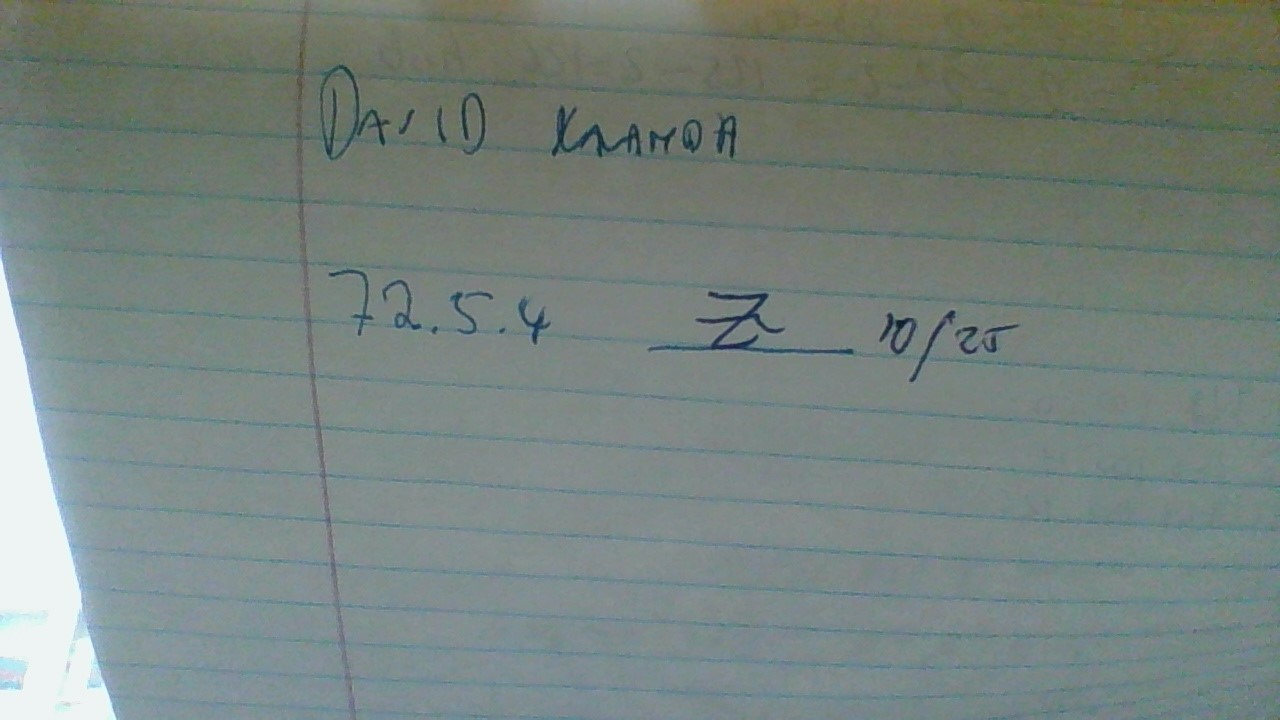 DAVID KAANDA
72.5.4 Z 10/25